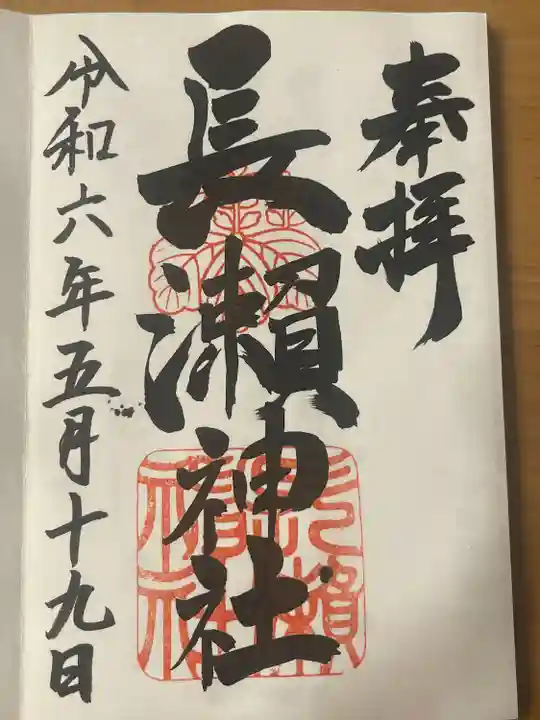 奉拝
長瀬神社
令和六年五月十九日